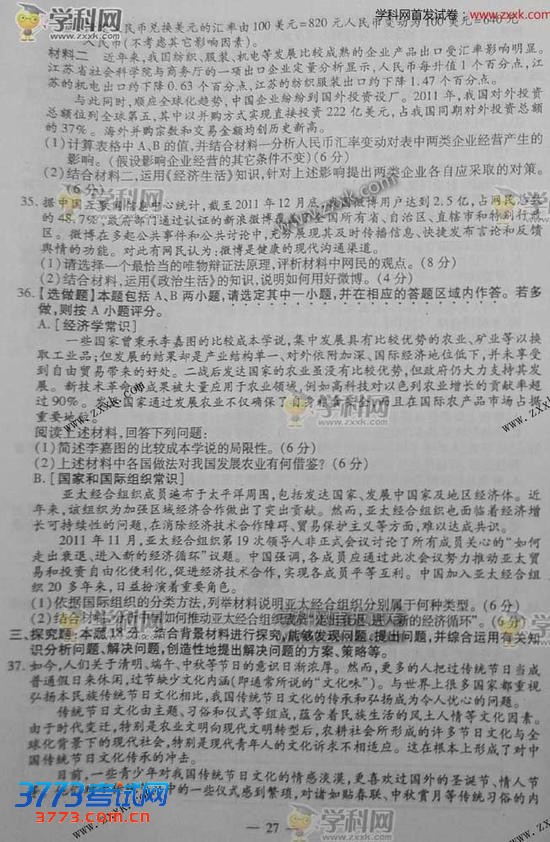 学科网首发试卷
www.zxxk.com
民币兑换美元的汇率由100美元=820元人民币变动为100美元=640元
人民币(不考虑其它影响因素)。
材料二 近年来,我国纺织、服装、机电等发展比较成熟的企业产品出口受汇率影响明显。
江苏省社会科学院与商务厅的一项出口企业定量分析显示,人民币每升值1个百分点,江
苏的机电出口约下降0.63个百分点,江苏的纺织服装出口约下降1.47个百分点。
与此同时,顺应全球化趋势,中国企业纷纷到国外投资设厂。2011年,我国对外投资
总额位列全球第五,其中以并购方式实现直接投资222亿美元,占我国同期对外投资总额
的37%。海外并购宗数和交易全额均创历史新高。
(1)计算表格中A、B的值,并结合材料一分析人民币汇率变动对表中两类企业经营产生的
影响。(假设影响企业经营的其它条件不变)(6分)
(2)结合材料二,运用《经济生活》知识,针对上述影响提出两类企业各自应采取的对策。
(6分)
35.据中国互联网信息中心统计,截至2011年12月底,我国微博用户达到2.5亿,占网民总数
的48.7%,政府部门通过认证的新浪微博
国所有省、自治区、直辖市和特别行政
区。微博在多起公共事件和公共讨论中,充分展现其及时传播信息、快捷发布言论和反馈
舆情的功能。对此有网民认为:微博是健康的现代沟通渠道。
(1)请选择一个最恰当的唯物辩证法原理,评析材料中网民的观点。(8分)
(2)结合材料,运用《政治生活》的知识,说明如何用好微博。(4分)
36.【选做题】本题包括A、B两小题,请选定其中一小题,并在相应的答题区域内作答。若多
做,则按A小题评分。
A.[经济学常识]
一些国家曾秉承李嘉图的比较成本学说,集中发展具有比较优势的农业、矿业等以换
取工业品;但发展的结果却是产业结构单一、对外依附加深、国际经济地位低下,并未享受
到自由贸易带来的好处。二战后发达国家的农业虽没有比较优势,但政府仍大力支持其发
展。新技术革命的成果被大量应用于农业领域,例如高科技对以色列农业增长的贡献率超
过90%。发达国家通过发展农业不仅确保了自身粮食安全,而且在国际农产品市场占据
重要地位。
阅读上述材料,回答下列问题:
(1)简述李嘉图的比较成本学说的局限性。(6分)
(2)上述材料中各国做法对我国发展农业有何借鉴?(6分)
B.[国家和国际组织常识]
亚太经合组织成员遍布于太平洋周围,包括发达国家、发展中国家及地区经济体。近
年来,该组织为加强区域经济合作做出了突出贡献。然而,亚太经合组织也面临着经济增
长可持续性的问题,在消除经济技术合作障碍、贸易保护主义等方面,难以达成共识。
2011年11月,亚太经合组织第19次领导人非正式会议讨论了所有成员关心的“如何
走出衰退、进入新的经济循环”议题。中国强调,各成员应通过此次会议努力推动亚太贸
易和投资自由化便利化,促进经济技术合作,实现各成员平等互利。中国加入亚太经合组
织20多年来,日益扮演着重要角色。
(1)依据国际组织的分类方法,列举材料说明亚太经合组织分别属于何种类型。(6分)
(2)结合材料,
如何推动亚太经合组织成员“走出衰退、进入新的经济循环”。(6分)
三、探究题:本题18分。结合背景材料进行探究,能够发现问题、提出问题,并综合运用有关知
识分析问题、解决问题,创造性地提出解决问题的方案、策略等。
37.如今,人们关于清明、端午、中秋等节日的意识日渐浓厚。然而,更多的人把过传统节日当成
普通假日来休闲,过节缺少文化内涵(即通常所说的“文化味”)。与世界上很多国家都重视
弘扬本民族传统节日文化相比,我国传统节日文化的传承和弘扬成为令人忧心的问题。
传统节日文化由主题、习俗和仪式等组成,蕴含着民族生活的风土人情等文化因素。
由于时代变迁,特别是农业文明向现代文明转型后,农耕社会所形成的许多节日文化与全
球化背景下的现代社会,特别是现代青年人的文化诉求不相适应。这在根本上形成了对中
国传统节日文化传承的冲击。
目前,一些青少年对我国传统节日文化的情感淡漠,更喜欢过国外的圣诞节、情人节
中的一些仪式感到繁琐,对诸如贴春联、中秋赏月等传统习俗的内
— 27 —
学科网
zxxk.com
3773考试网
3773.com.cn